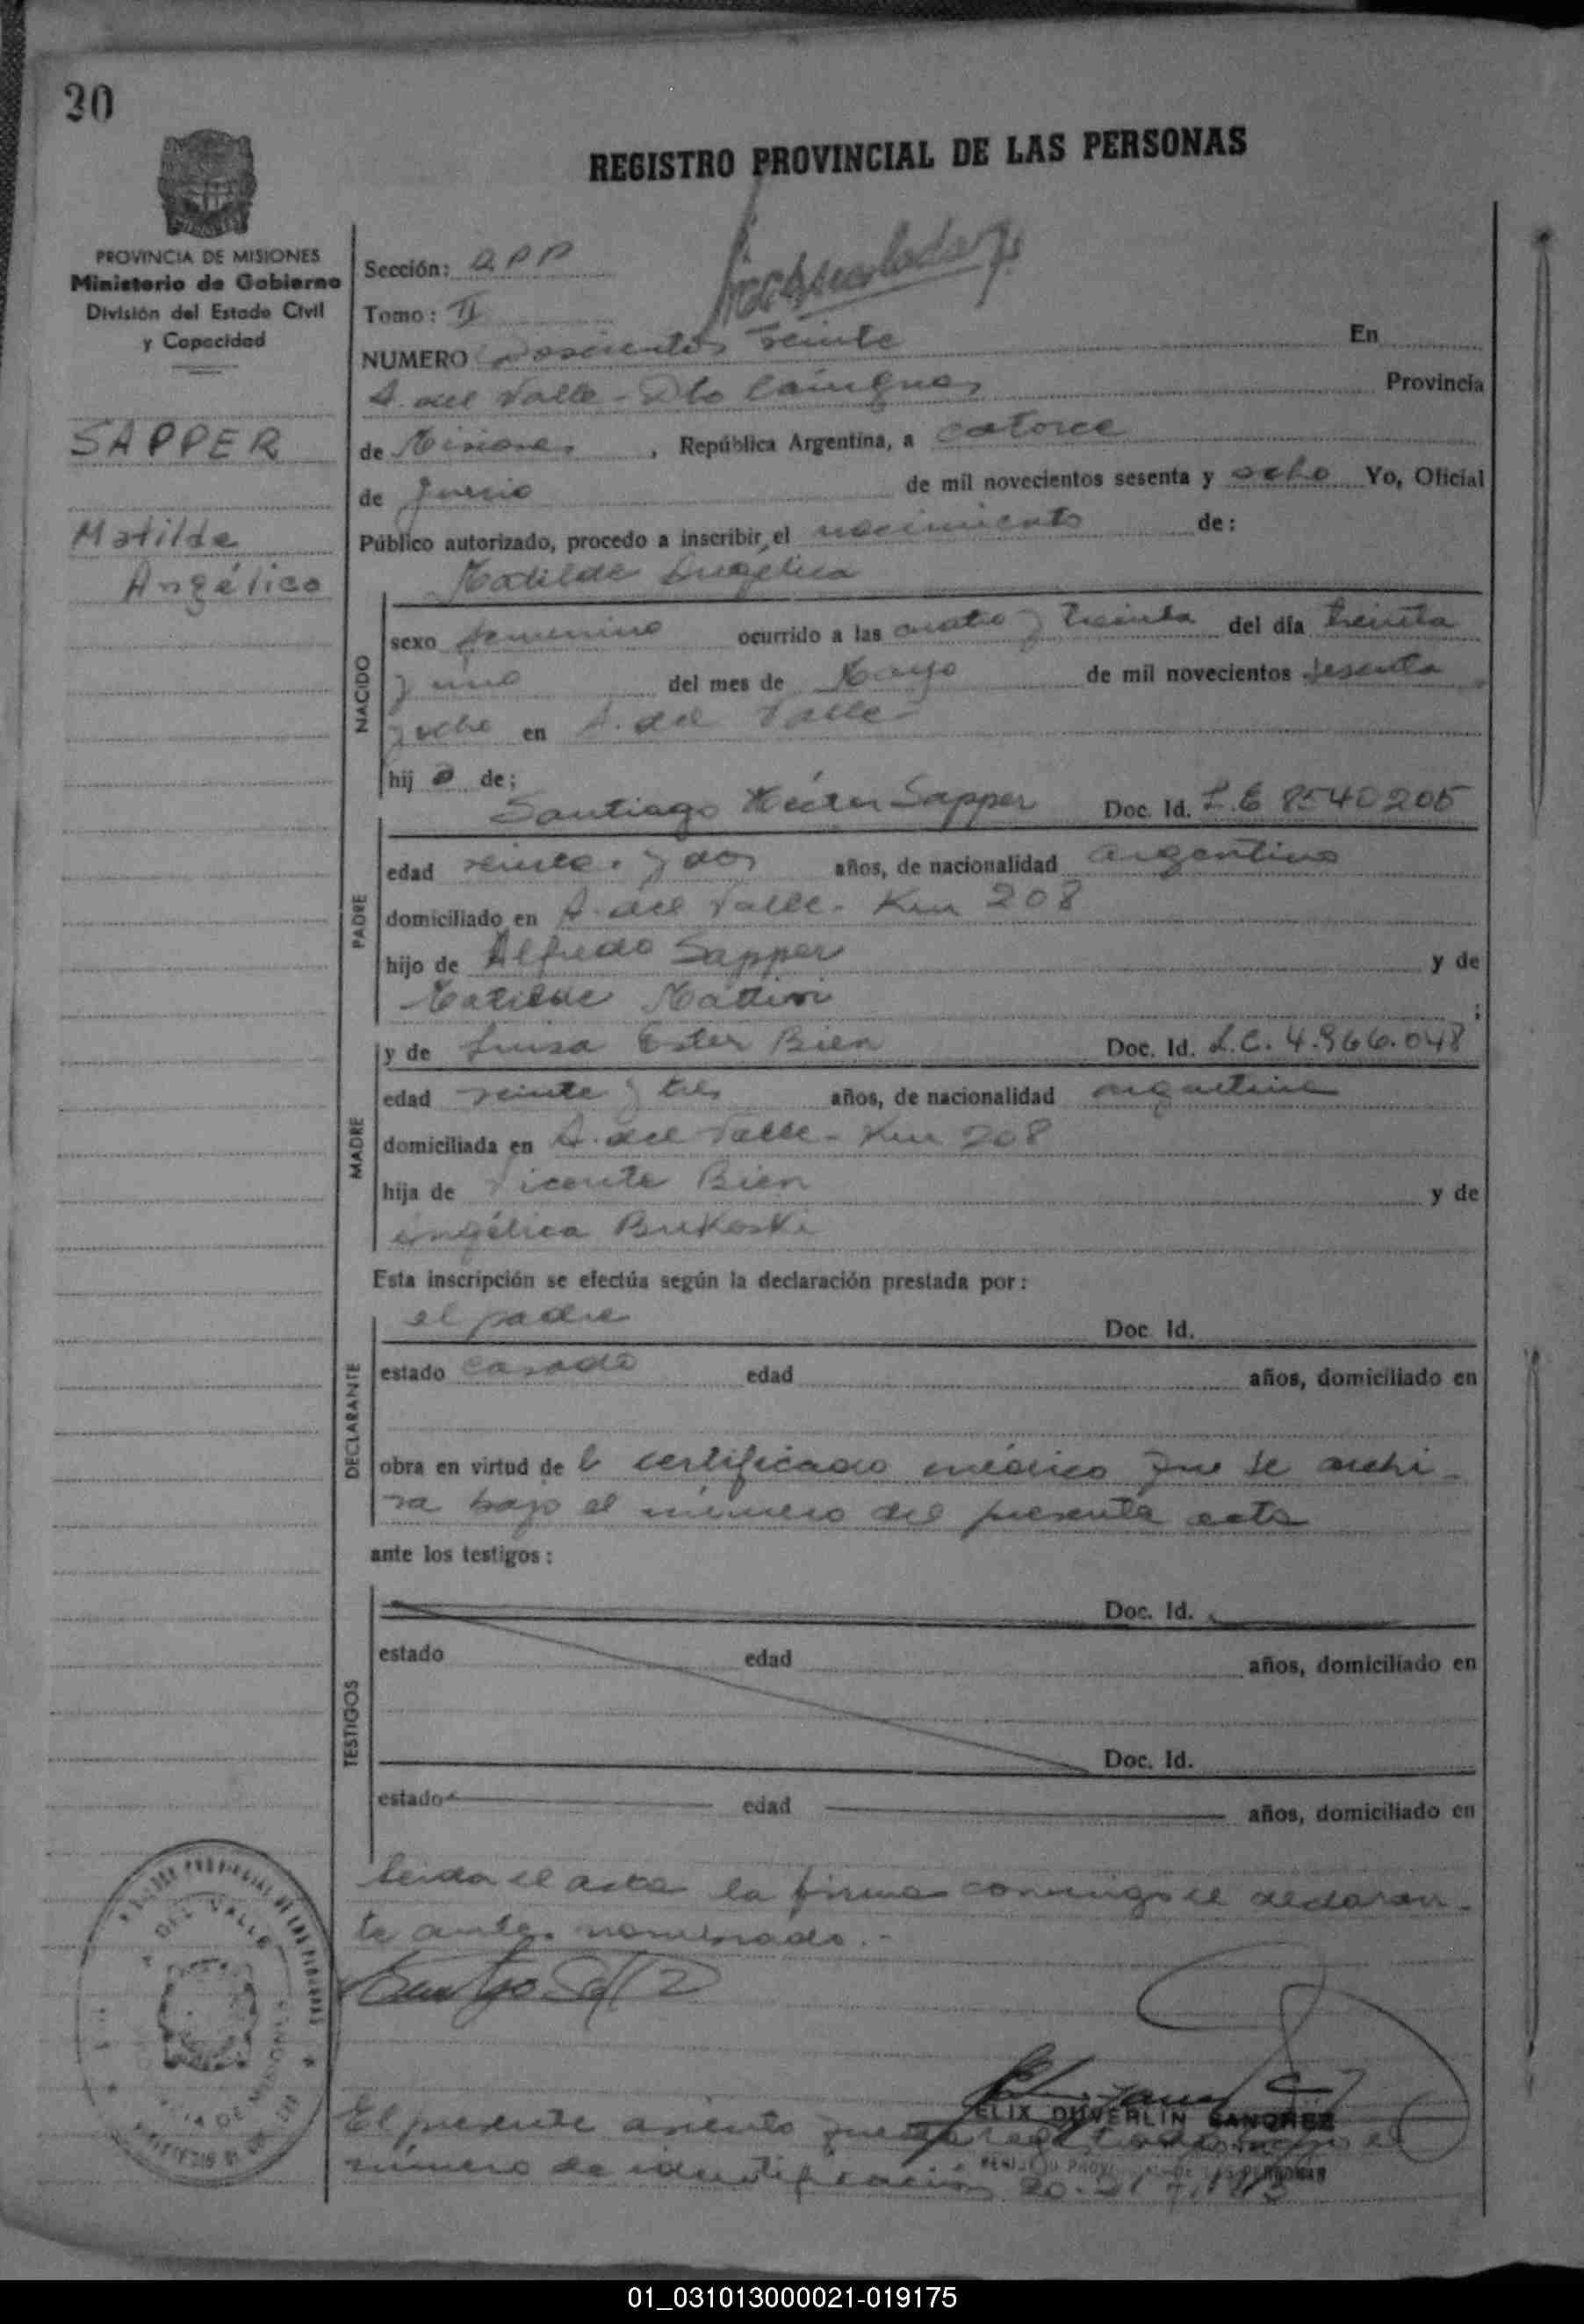 20
REGISTRO PROVINCIAL DE LAS PERSONAS
PROVINCIA DE MISIONES
Ministerio de Gobierno
División del Estado Civil
y Capacidad
SAPPER
Matilde
Angélica
Sección:
Tomo: II
NUMERO Doscientos veinte En
A. del Valle - Dto Cainguas Provincia
de Misiones, República Argentina, a catorce
de Junio de mil novecientos sesenta y ocho Yo, Oficial
Público autorizado, procedo a inscribir el nacimiento de:
Matilde Angélica
NACIDO
sexo femenino ocurrido a las cuatro y treinta del día treinta
y uno del mes de Mayo de mil novecientos sesenta
y ocho en A. del Valle
hij a de;
Santiago Héctor Sapper Doc. Id. L.E 8540205
PADRE
edad veinte y dos años, de nacionalidad argentino
domiciliado en A. del Valle - Km 208
hijo de Alfredo Sapper y de
Matilde ;
y de Luisa Ester Bien Doc. Id. L.C. 4.966.048
MADRE
edad veinte y tres años, de nacionalidad argentina
domiciliada en A. del Valle - Km 208
hija de Vicente Bien y de
Angélica Bukoski
Esta inscripción se efectúa según la declaración prestada por:
el padre Doc. Id.
DECLARANTE
estado casado edad años, domiciliado en
obra en virtud de l certificado médico que se archi-
va bajo el número del presente acta
ante los testigos:
TESTIGOS
Doc. Id.
estado edad años, domiciliado en
Doc. Id.
estado edad años, domiciliado en
Leida el acta la firma conmigo el declaran-
te antes nombrado.-
FELIX DUVERLIN SANCHEZ
El presente asiento queda registrado bajo el
número de identificación
01_031013000021-019175